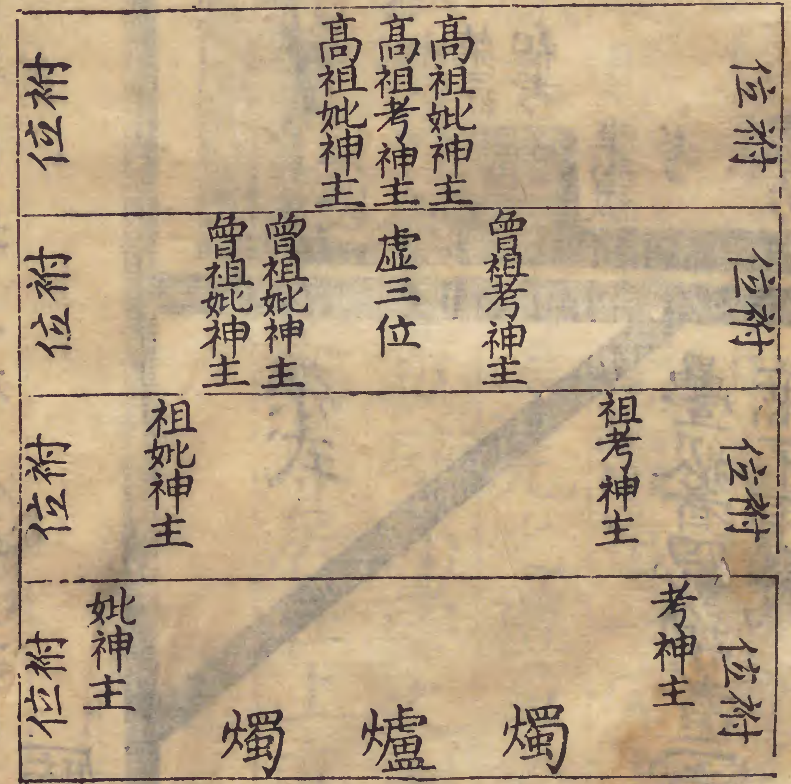 祔位
髙祖妣神主
髙祖考神主
髙祖妣神主
祔位
祔位
曾祖考神主
虚三位
曾祖妣神主
曾祖妣神主
祔位
祔位
祖考神主
祖妣神主
祔位
祔位
考神主
燭
爐
燭
妣神主
祔位